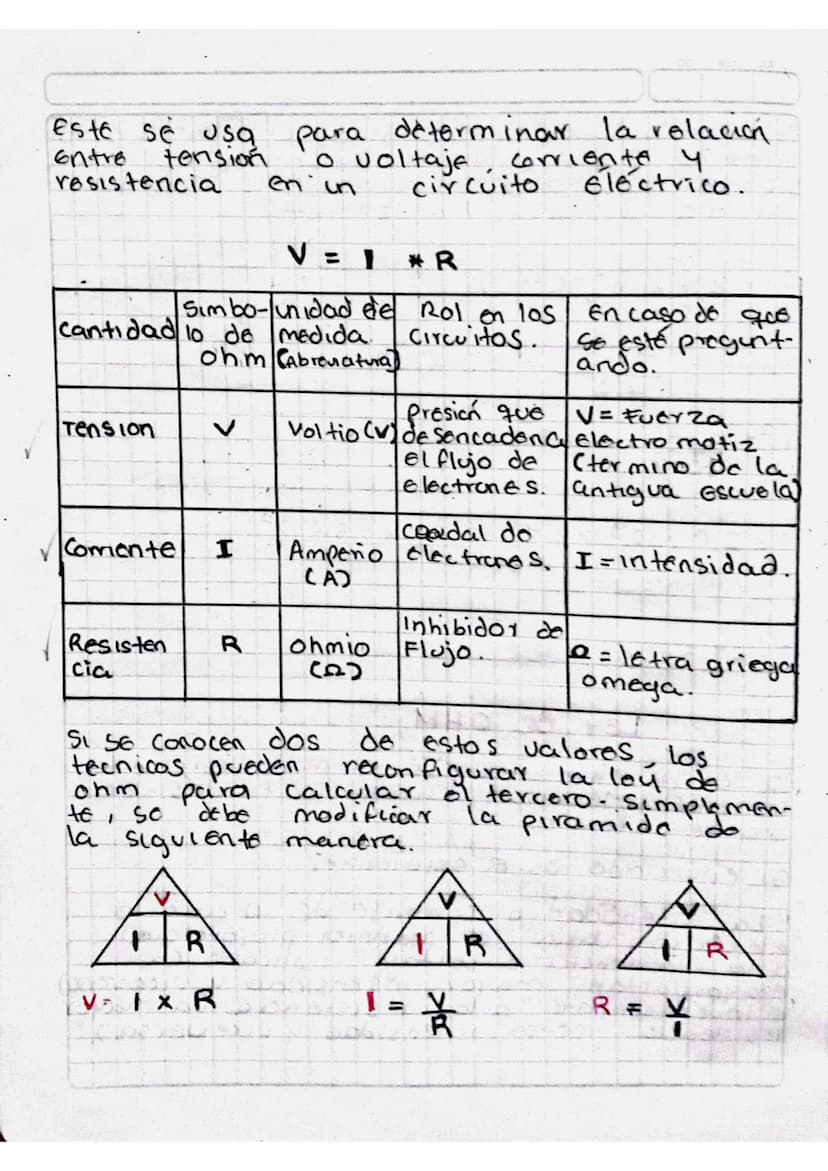 Este se usa para determinar la relación
entre tensión o voltaje, corriente y
resistencia en un circuito eléctrico.
V = I * R
Cantidad
Simbo-
lo de
ohm
unidad de
medida
(Abreviatura)
Rol en los
circuitos.
En caso de que
se esté pregunt-
ando.
Tension
V
Voltio (V)
Presión que
desencadena
el flujo de
electrones.
V = Fuerza
electro motiz
(termino de la
antigua escuela)
Corriente
I
Amperio
(A)
caudal de
electrones.
I = intensidad.
Resisten
cia
R
ohmio
(Ω)
Inhibidor de
Flujo.
Ω = letra griega
omega.
Si se conocen dos de estos valores, los
tecnicos pueden reconfigurar la ley de
ohm para calcular el tercero. Simplemen-
te, se debe modificar la piramide de
la siguiente manera.
V
I R
V
I R
V
I R
V = I x R
I = V/R
R = V/I